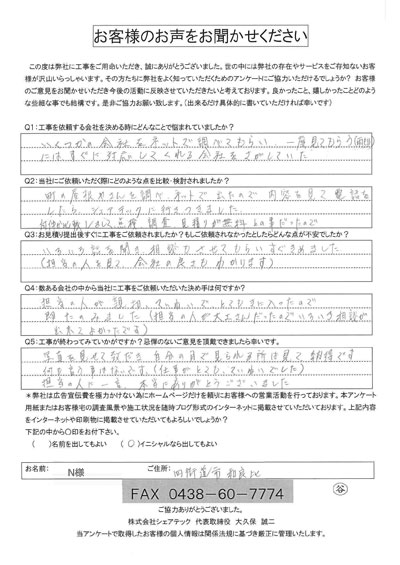 お客様のお声をお聞かせください
この度は弊社に工事をご用命いただき、誠にありがとうございました。世の中には弊社の存在やサービスをご存知ないお客
様が沢山いらっしゃいます。その方たちに弊社をよく知っていただくためのアンケートにご協力いただけるでしょうか？ お客様
のご意見をお聞かせいただき今後の活動に反映させていただきたいと考えております。良かったこと、嬉しかったことどのよう
な些細な事でも結構です。是非ご協力お願い致します。(出来るだけ具体的に書いていただければ幸いです)
Q1：工事を依頼する会社を決める時にどんなことで悩まれていましたか？
いくつかの会社をネットで調べてもらい 一度見てもらう
にはすぐに対応してくれる会社をさがしていた
Q2：当社にご依頼いただく際にどのような点を比較・検討されましたか？
町の屋根やさんを調べ ネットで出たので 内容を見て電話を
したら シェアテックに行きつきました
点検 調査 見積りが無料との事だったので
Q3：お見積り提出後すぐに工事をご依頼されましたか？もしご依頼されなかったとしたらどんな点が不安でしたか？
いろいろ話を聞き 相談させてもらいすぐきめました
(担当の人を見て、会社の良さもわかります)
Q4：数ある会社の中から当社に工事をご依頼いただいた決め手は何ですか？
担当の人が親切、ていねいで とても気に入ったので
頼みました (担当の人が大工さんだったのでいろいろ相談が
出来てよかったです)
Q5：工事が終わってみていかがですか？忌憚のないご意見を頂戴できましたら幸いです。
写真を見せて頂だき 自分の目で見られる所は見て 納得です
何も言う事はないです。(仕事がとても、ていねいでした)
担当の人に一言、本当にありがとうございました
＊弊社は広告宣伝費を極力かけない為にホームページだけを頼りにお客様への営業活動を行っております。本アンケート
用紙またはお客様宅の調査風景や施工状況を随時ブログ形式のインターネットに掲載させていただいております。上記内容
をインターネットや印刷物に掲載させていただいてもよろしいでしょうか？
下記の中から〇印をお付下さい。
( )名前を出してもよい (○)イニシャルなら出してもよい
お名前： N様 ご住所： 四街道市 和良比
FAX 0438-60-7774
谷
ご協力ありがとうございました。
株式会社シェアテック 代表取締役 大久保 誠二
当アンケートで取得したお客様の個人情報は関係法規に基づき厳正に管理いたします。